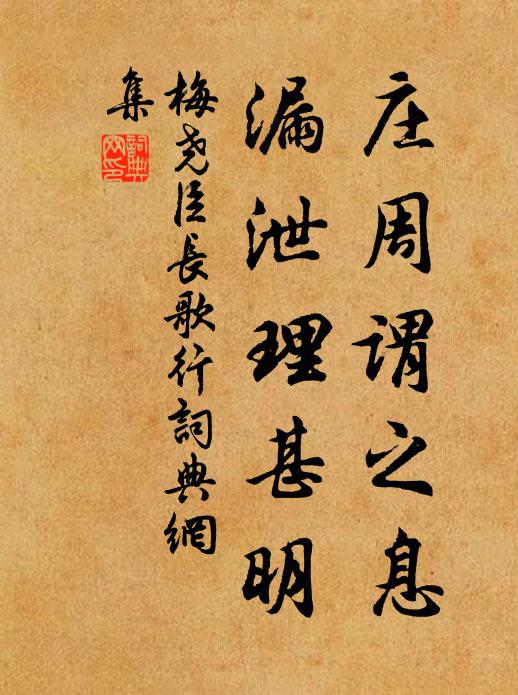 庄周谓之息
漏泄理甚明
梅尧臣長歌行詞典網
集
詞典
网印